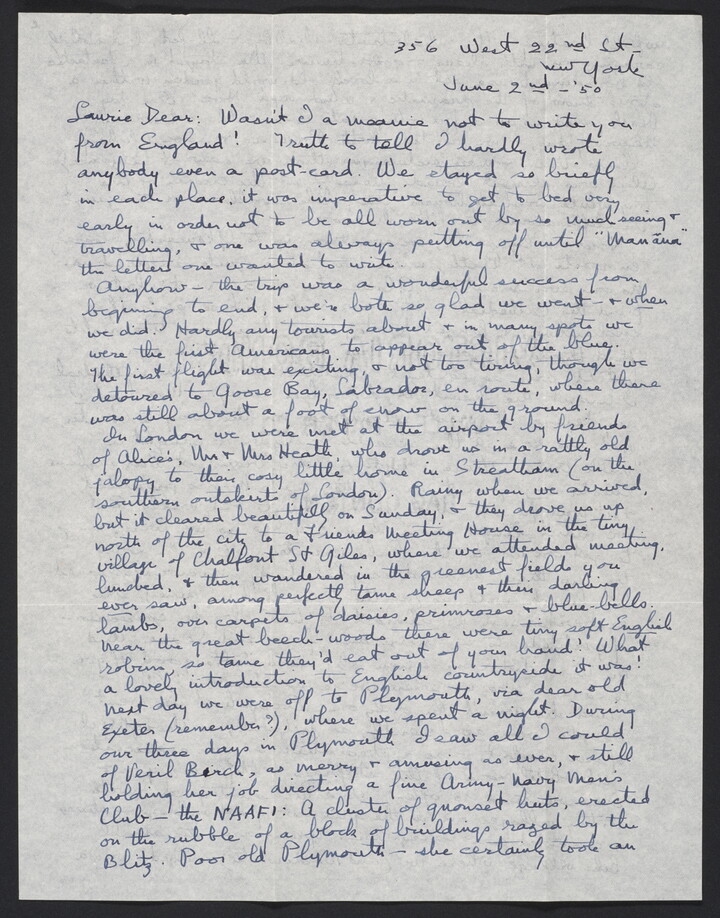 356 West 22nd St-
New York
June 2nd - '50
Laurie Dear: Wasn't I a meanie not to write you
from England! Truth to tell I hardly wrote
anybody even a post-card. We stayed so briefly
in each place, it was imperative to get to bed very
early in order not to be all worn out by so much seeing +
travelling, + one was always putting off until "Mañana"
the letters one wanted to write.
Anyhow - the trip was a wonderful success from
begining to end, + we're both so glad we went - + when
we did. Hardly any tourists about + in many spots we
were the first Americans to appear out of the blue.
The first flight was exciting, + not too tiring, though we
detoured to Goose Bay, Labrador, en route, where there
was still about a foot of snow on the ground.
In London we were met at the airport by friends
of Alice's, Mr + Mrs Heath, who drove us in a rattly old
jalopy to their cosy little home in Streatham (on the
southern outskirts of London). Rainy when we arrived,
but it cleared beautifully on Sunday, + they drove us up
north of the city to a Friends Meeting House in the tiny
village of Chalfont St Giles, where we attended meeting,
lunched, + then wandered in the greenest fields you
ever saw, among perfectly tame sheep + their darling
lambs, over carpets of daisies, primroses + blue-bells.
Near the great beech-woods there were tiny soft English
robins, so tame they'd eat out of your hand! What
a lovely introduction to English countryside it was!
Next day we were off to Plymouth, via dear old
Exeter (remember?), where we spent a night. During
our three days in Plymouth I saw all I could
of Veril Birch, as merry + amusing as ever, + still
holding her job directing a fine Army-Navy Men's
Club - the NAAFI: A cluster of quonset huts, erected
on the rubble of a block of buildings razed by the
Blitz. Poor old Plymouth - she certainly took an